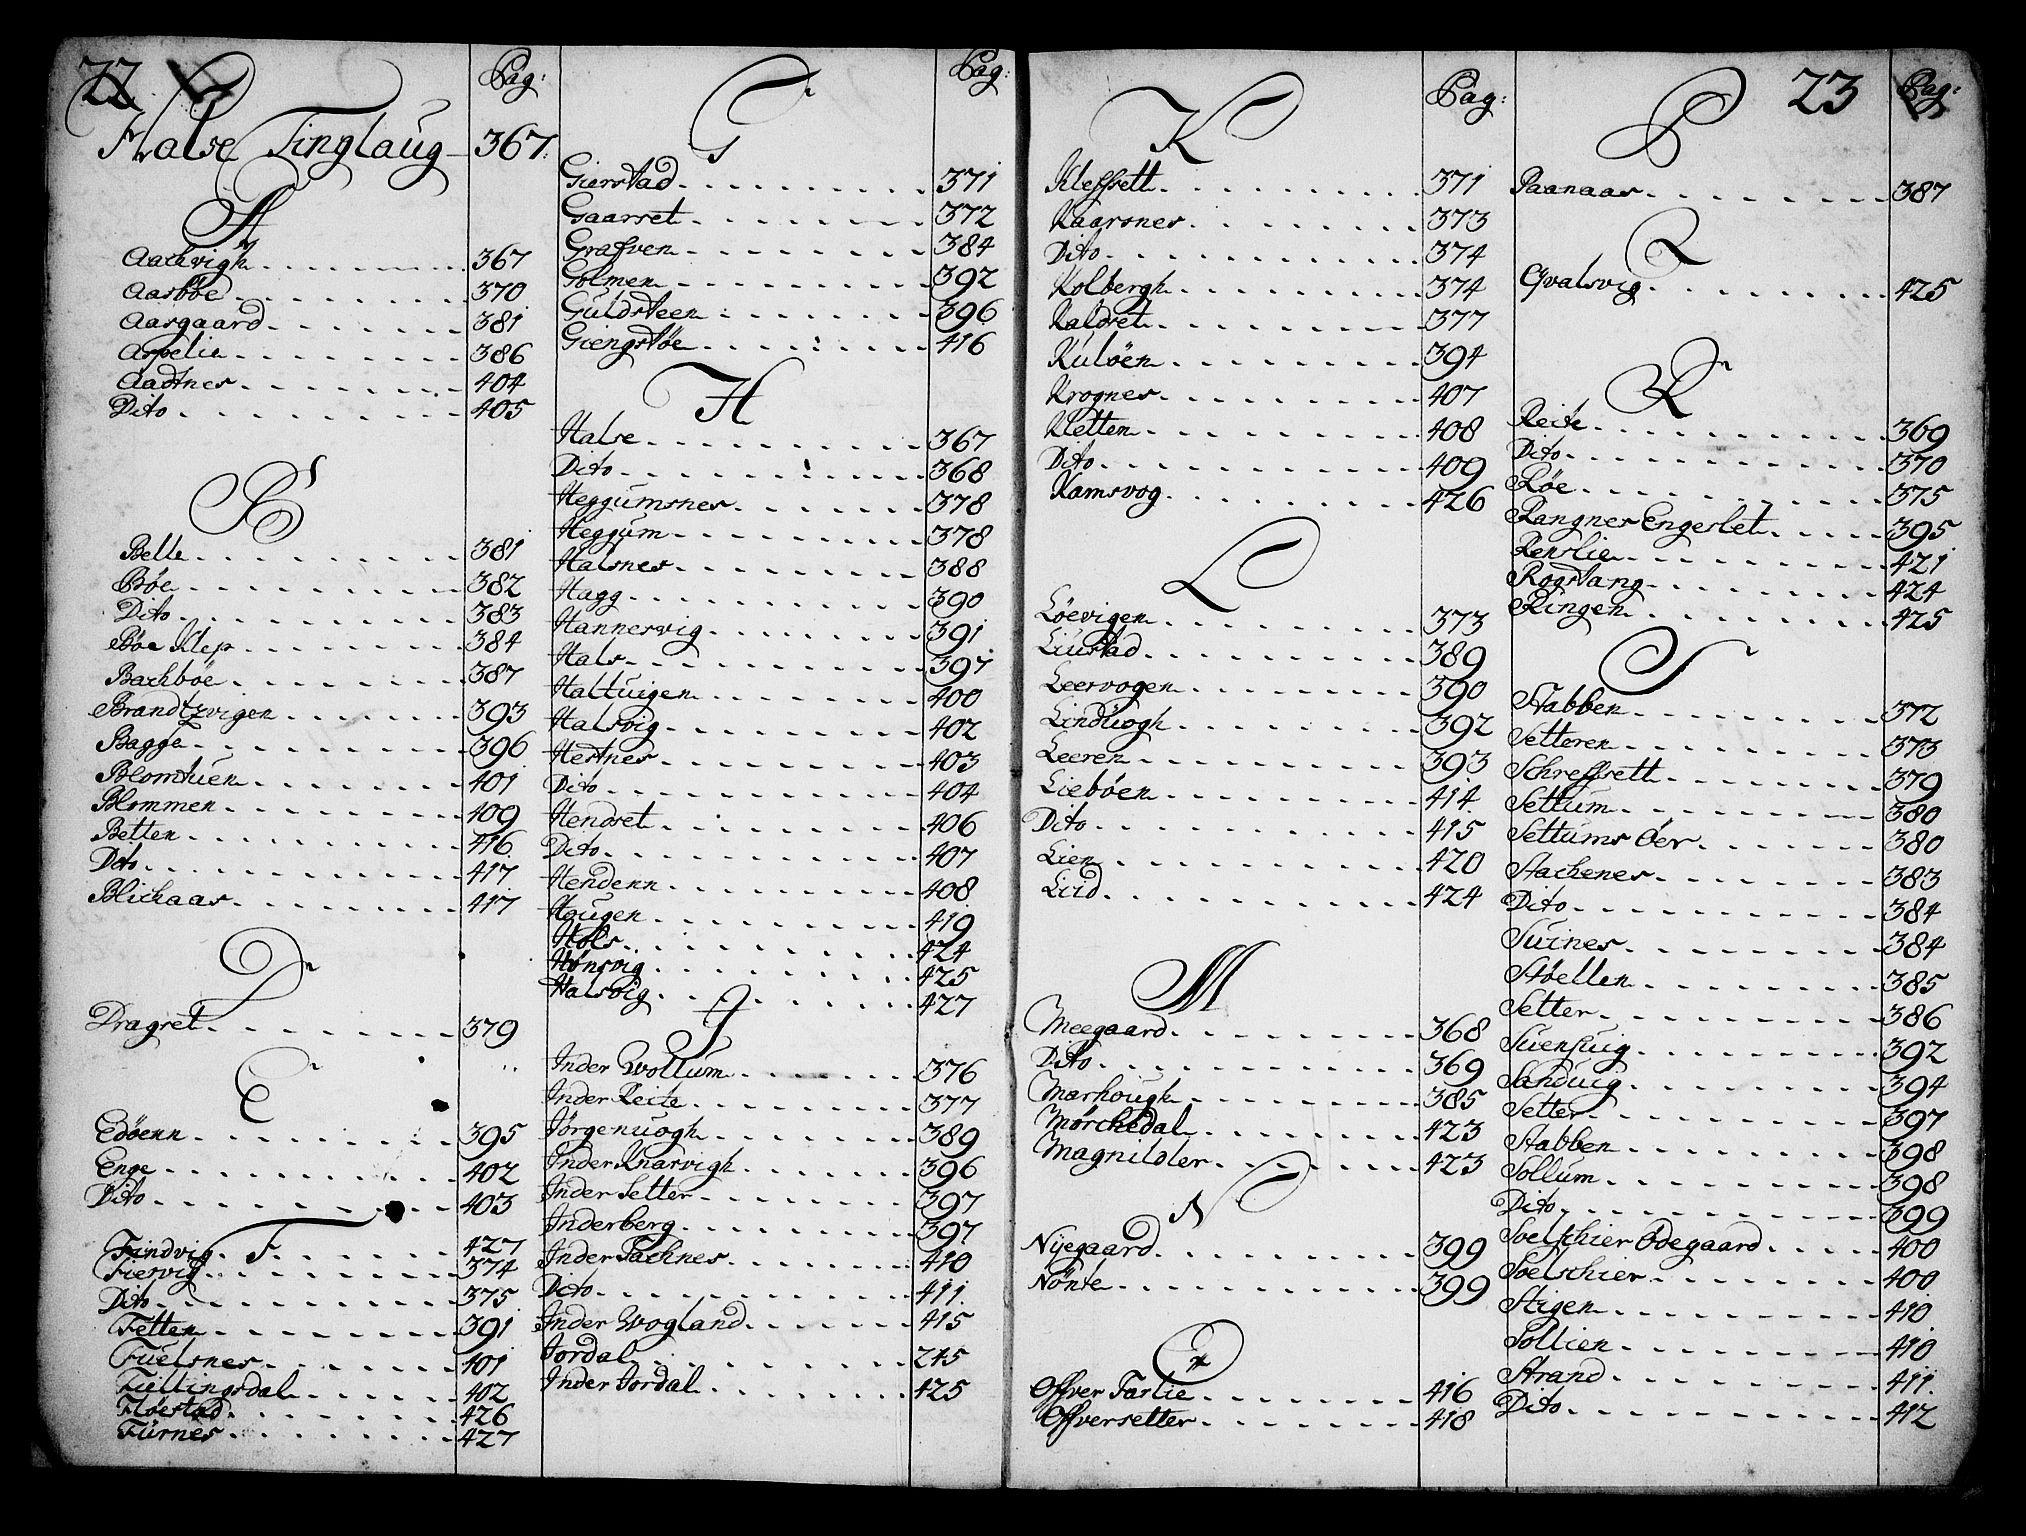 22
Pag:
Halse Tinglaug 367:
A
Aachvigh 367
Aasbøe 370
Aasgaard 381
Aspelie 386
Aadtnes 404
Dito 405
B
Belle 381
Bøe 382
Dito 383
Bøe Klep 384
Bachbøe 387
Brandtzvigen 393
Bagge 396
Blomtuen 401
Blommen 409
Betten 416
Dito 417
Blichaas 417
D
Dragset 379
E
Edøenn 395
Enge 402
Dito 403
F
Findvig 427
Fiervig 374
Dito 375
Fetten 391
Fuelsnes 401
Fiellingsdal 402
Fløestad 426
Fürnes 427
Pag:
G
Gierstad 371
Gaarset 372
Grafsven 384
Golmen 392
Guldsteen 396
Giengstøe 416
H
Halse 367
Dito 368
Heggumsnes 378
Heggum 378
Halsnes 388
Hagg 390
Hannesvig 391
Hals 397
Haltuigen 400
Halsvig 402
Hestnes 403
Dito 404
Hendset 406
Dito 407
Hendenn 408
Haugen 419
Hols 424
Hønsvig 425
Halsvig 427
J
Inder Wollum 376
Inder Reite 377
Jørgenuogh 389
Inder Knarvigh 396
Inder Setter 397
Inderberg 397
Inder Sachnes 410
Dito 411
Inder Wogland 415
Jordal 245
Inder Jordal 425
Pag:
K
Klefsett 371
Kaarsnes 373
Dito 374
Kolbergh 374
Kaldset 377
Kuløen 394
Krognes 407
Kletten 408
Dito 409
Kamsvog 426
L
Løevigen 373
Liustad 389
Leervogen 390
Linduogh 392
Leeren 393
Liebøen 414
Dito 415
Lien 420
Liid 424
M
Meegaard 368
Dito 369
Marhough 385
Mørchedal 423
Magnilsler 423
N
Nyegaard 399
Nønte 399
O
Ofver Farlie 416
Ofversetter 418
23
Pag:
P
Paanaas 387
Q
Qvalsvig 425
R
Reite 369
Dito 370
Røe 375
Rangnes Engeslet 395
Renslie 421
Rogstang 424
Ringen 425
S
Stabben 372
Setteren 373
Schrefsett 379
Settum 380
Settums Øer 380
Stachenes 383
Dito 384
Suines 384
Støellen 385
Setter 386
Suensuig 392
Sanduig 394
Setter 397
Stabben 398
Sollum 398
Dito 399
Soelschier Ødegaard 400
Soelschier 400
Stigen 410
Sollien 410
Strand 411
Dito 412